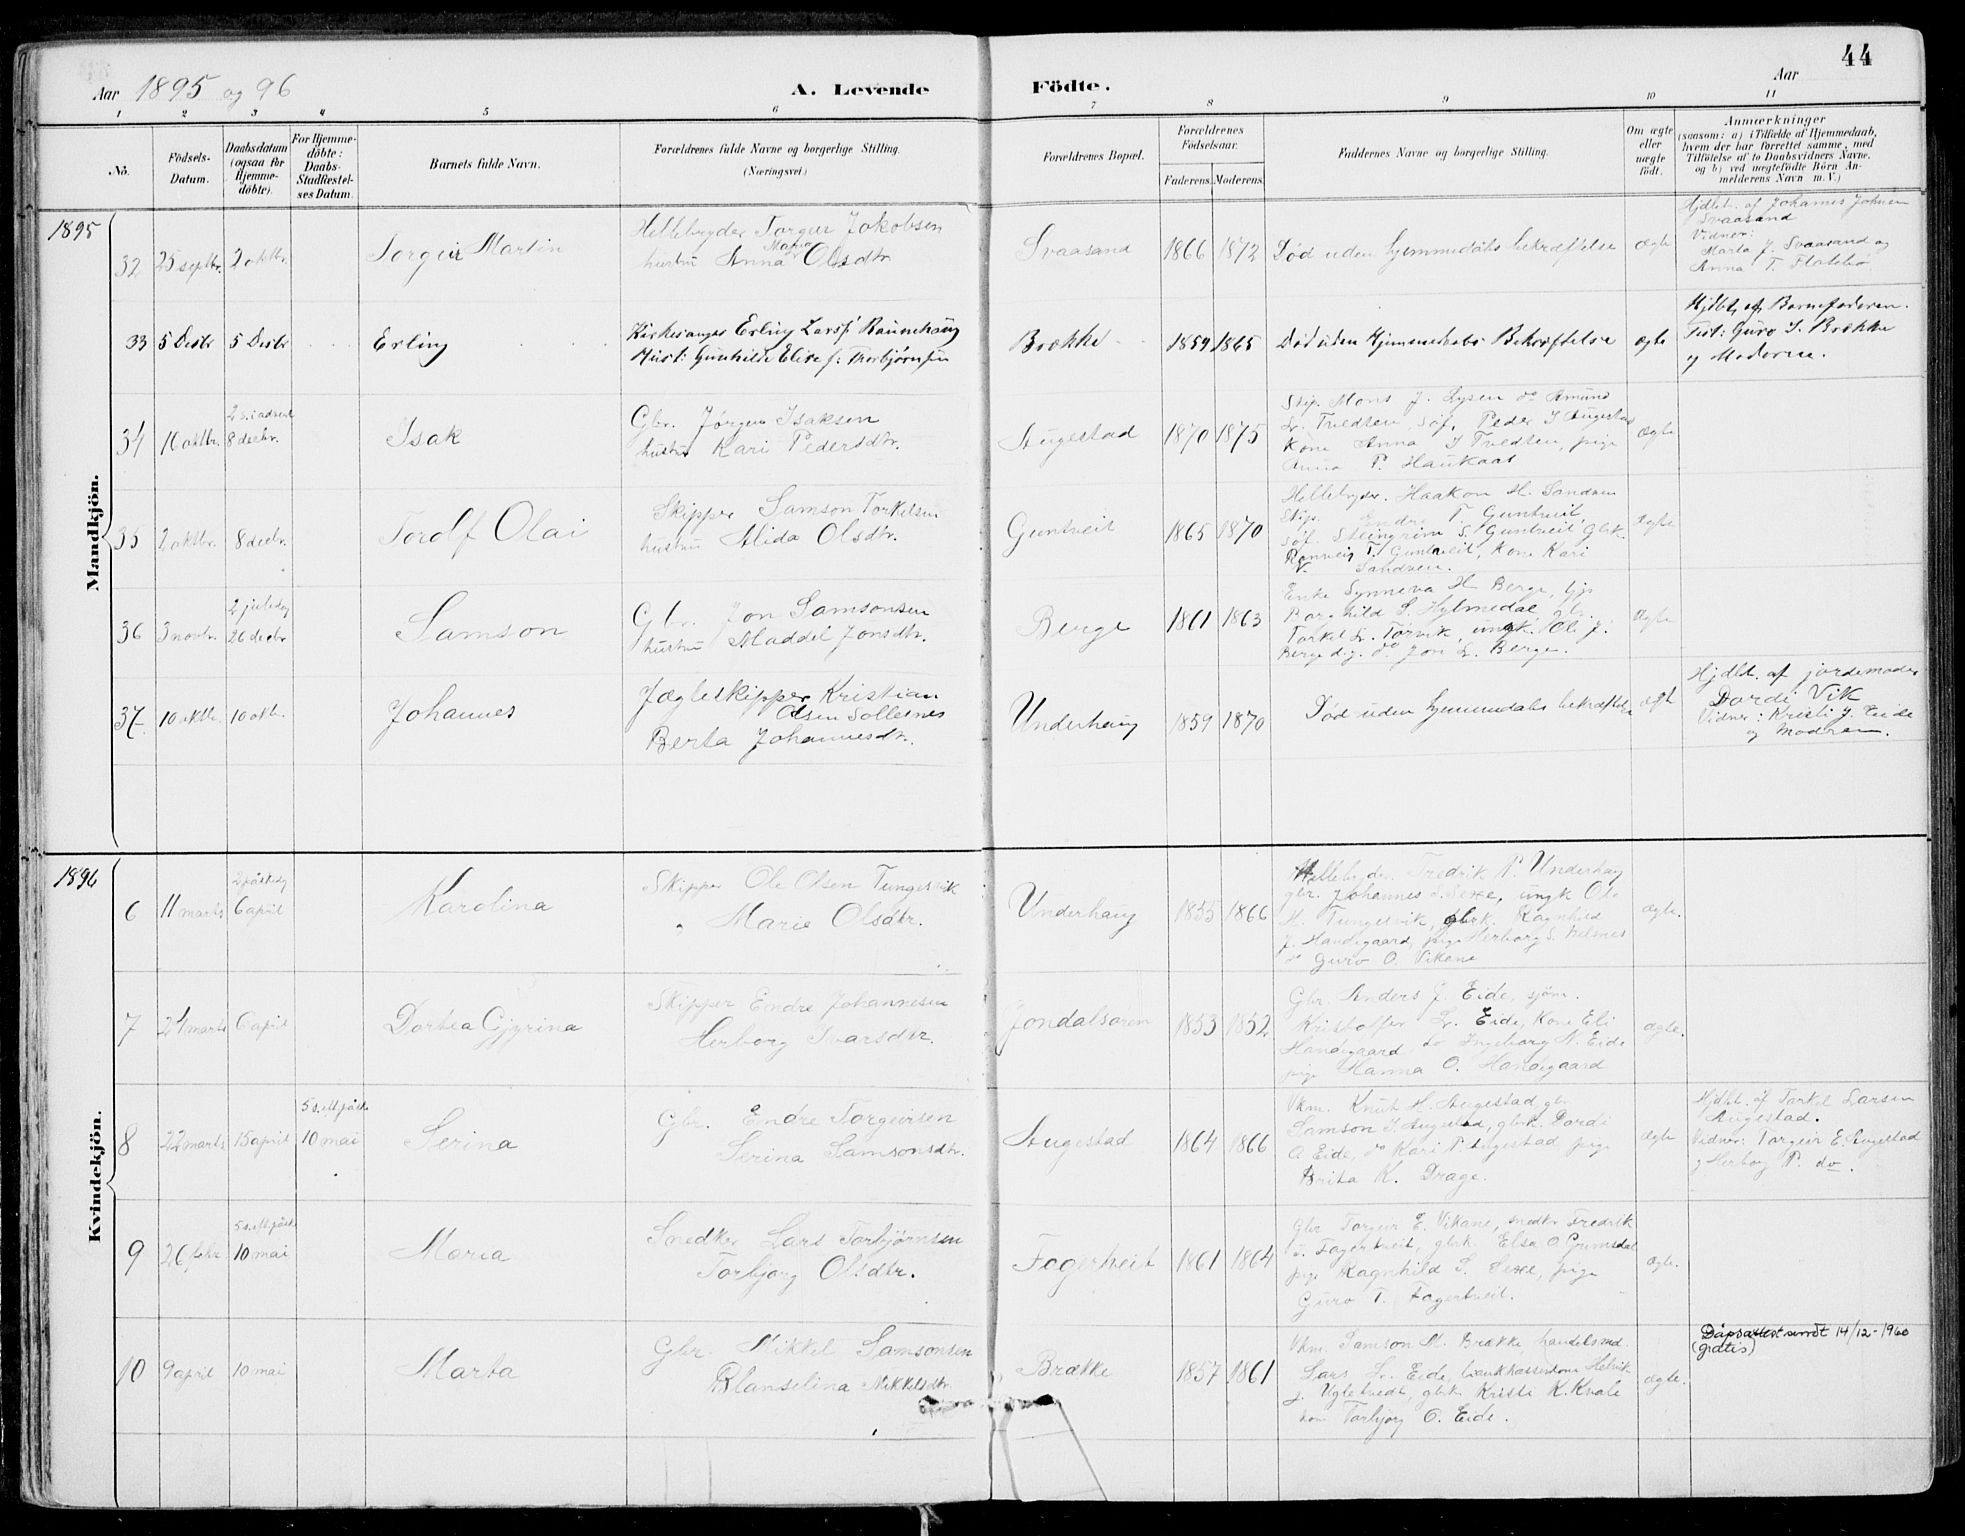 44
Aar 1895 og 96
A. Levende Födte.
Aar
1 2 3 4 5 6 7 8 9 10 11
No.
Födsels-Datum.
Daabsdatum (ogsaa för Hjemme-döbte).
For Hjemme-döbte: Daabs-Stadfæstel-ses Datum.
Barnets fulde Navn.
Forældrenes fulde Navne og borgerlige Stilling. (Næringsvei.)
Forældrenes Bopæl.
Forældrenes Födselsaar.
Faderens. Moderens.
Faddernes Navne og borgerlige Stilling.
Om ægte eller uægte födt.
Anmærkninger
(saasom: a) i Tilfælde af Hjemmedaab, hvem der har forrettet samme, med Tilföielse af to Daabsvidners Navne, og b) ved uægtefödte Börn Anmelderens Navn m. V.)
Mandkjön.
1895
32 25 septbr. 2 oktbr. Torgeir Martin
Hellebryder Torgeir Jakobsen
hustru Anna Maria Olsdtr.
Svaasand 1866 1872 Död uden hjemmedåbs bekræftelse ægte
Hjdbt. af Johannes Johnsen
Svaasand
Vidner:
Marta J. Svaasand og
Anna T. Flatebø
33 5 Desbr 5 Desbr Erling
Kirkesanger Erling Larss. Raunehaug
Hust: Gunhilde Elise f. Thorbjørnsen
Brække 1859 1865 Død uden Hjemmedaabs Bekræftelse ægte
Hjdbt. af Barnefaderen.
Test: Guro S. Brække
og Moderen.
34 16 oktbr. 2 s. i advent 8 decbr. Isak
Gbr. Jørgen Isaksen
hustru Kari Pedersdtr.
Augestad 1870 1875
Skip. Mons J. Lysen do Amund
L. Tvedten, søf. Peder I Augestad
Kone Anna I Tvedten, pige
Anna P. Haukaas
ægte
35 2 oktbr. 8 decbr. Torolf Olai
Skipper Samson Torkelsen
hustru Alida Olsdtr.
Guntveit 1865 1870
Hellebryder. Haakon H. Sandven
Skip. Endre T Guntveit
søf. Steingrim S. Guntveit, gbrk.
Ranveig T. Guntveit, Kone Kari
Sandven.
ægte
36 3 novbr. 2 juledag 26 decbr. Samson
Gbr. Jon Samsonsen
hustru Maddel Jonsdtr.
Berge 1861 1863
Enke Synneva H Berge,
Borghild S. Hylmedal, gbr.
Torkel L. Torvik, ungk. Ole J.
Berge d.y. do Jon L. Berge.
ægte
37 10 oktbr. 10 oktbr. Johannes
Jægteskipper Kristian
Olsen Sollesnes
Berta Johannesdtr.
Underhaug 1859 1870 Død uden hjemmedaabs bekræftelse ægte
Hjdbt. af jordemoder
Dordi Vik
Vidner: Kristi J. Eide
og Modren.
Kvindekjön.
1896
6 11 marts 2 påskedg 6 april Karolina
Skipper Ole Olsen Tungesvik
" Marie Olsdtr.
Underhaug 1855 1866
Hellebryder. Fredrik N. Underhaug
gbr. Johannes S. Sexe, ungk Ole
H. Tungesvik, gbrk. Ragnhild
J. Handegaard, pige Herborg S. Velnes
do Guro O. Vikane
ægte.
7 24 marts 6 april Dortea Gjyrina
Skipper Endre Johannesen
Herborg Ivarsdtr.
Jondalsøren 1853 1852
Gbr. Anders J. Eide, sjøm.
Kristoffer L. Eide, Kone Eli
Handegaard do Ingeborg N. Eide
pige Hanna O. Handegaard
ægte.
8 22 marts 15 april 5 s. eft. påske 10 mai Serina
Gbr. Endre Torgeirsen
Serina Samsonsdtr.
Augestad 1864 1866
Vkm. Knut H. Augestad, gbr
Samson I. Augestad, gbrk. Dordi
A Eide, do Kari P. Augestad pige
Brita K. Drage.
ægte
Hjdbt. af Torkel Larsen
Augestad.
Vidner: Torgeir E. Augestad
og Herborg P. do.
9 26 febr 5 s. eft. påske 10 mai Maria
Snedker Lars Torbjørnsen
Torbjorg Olsdtr.
Fagertveit 1861 1864
Gbr Torgeir E. Vikane, snedkr Fredrik
T. Fagertveit, gbrk. Elsa O Grimsdal
pige Ragnhild S. Sexe, pige
Guro T. Fagertveit.
ægte.
10 9 april 10 mai Marta
Gbr. Mikkel Samsonsen
Blanselina Mikkelsdtr.
Brække 1857 1861
Vkm. Samson M. Brække handelsmd.
Lars L. Eide, bankkasserer Helrik
J. Ugletvedt, gbrk Kristi K. Kvale
kone Torbjorg O. Eide.
ægte.
Dåpsattest sendt 14/12-1960
(gratis)